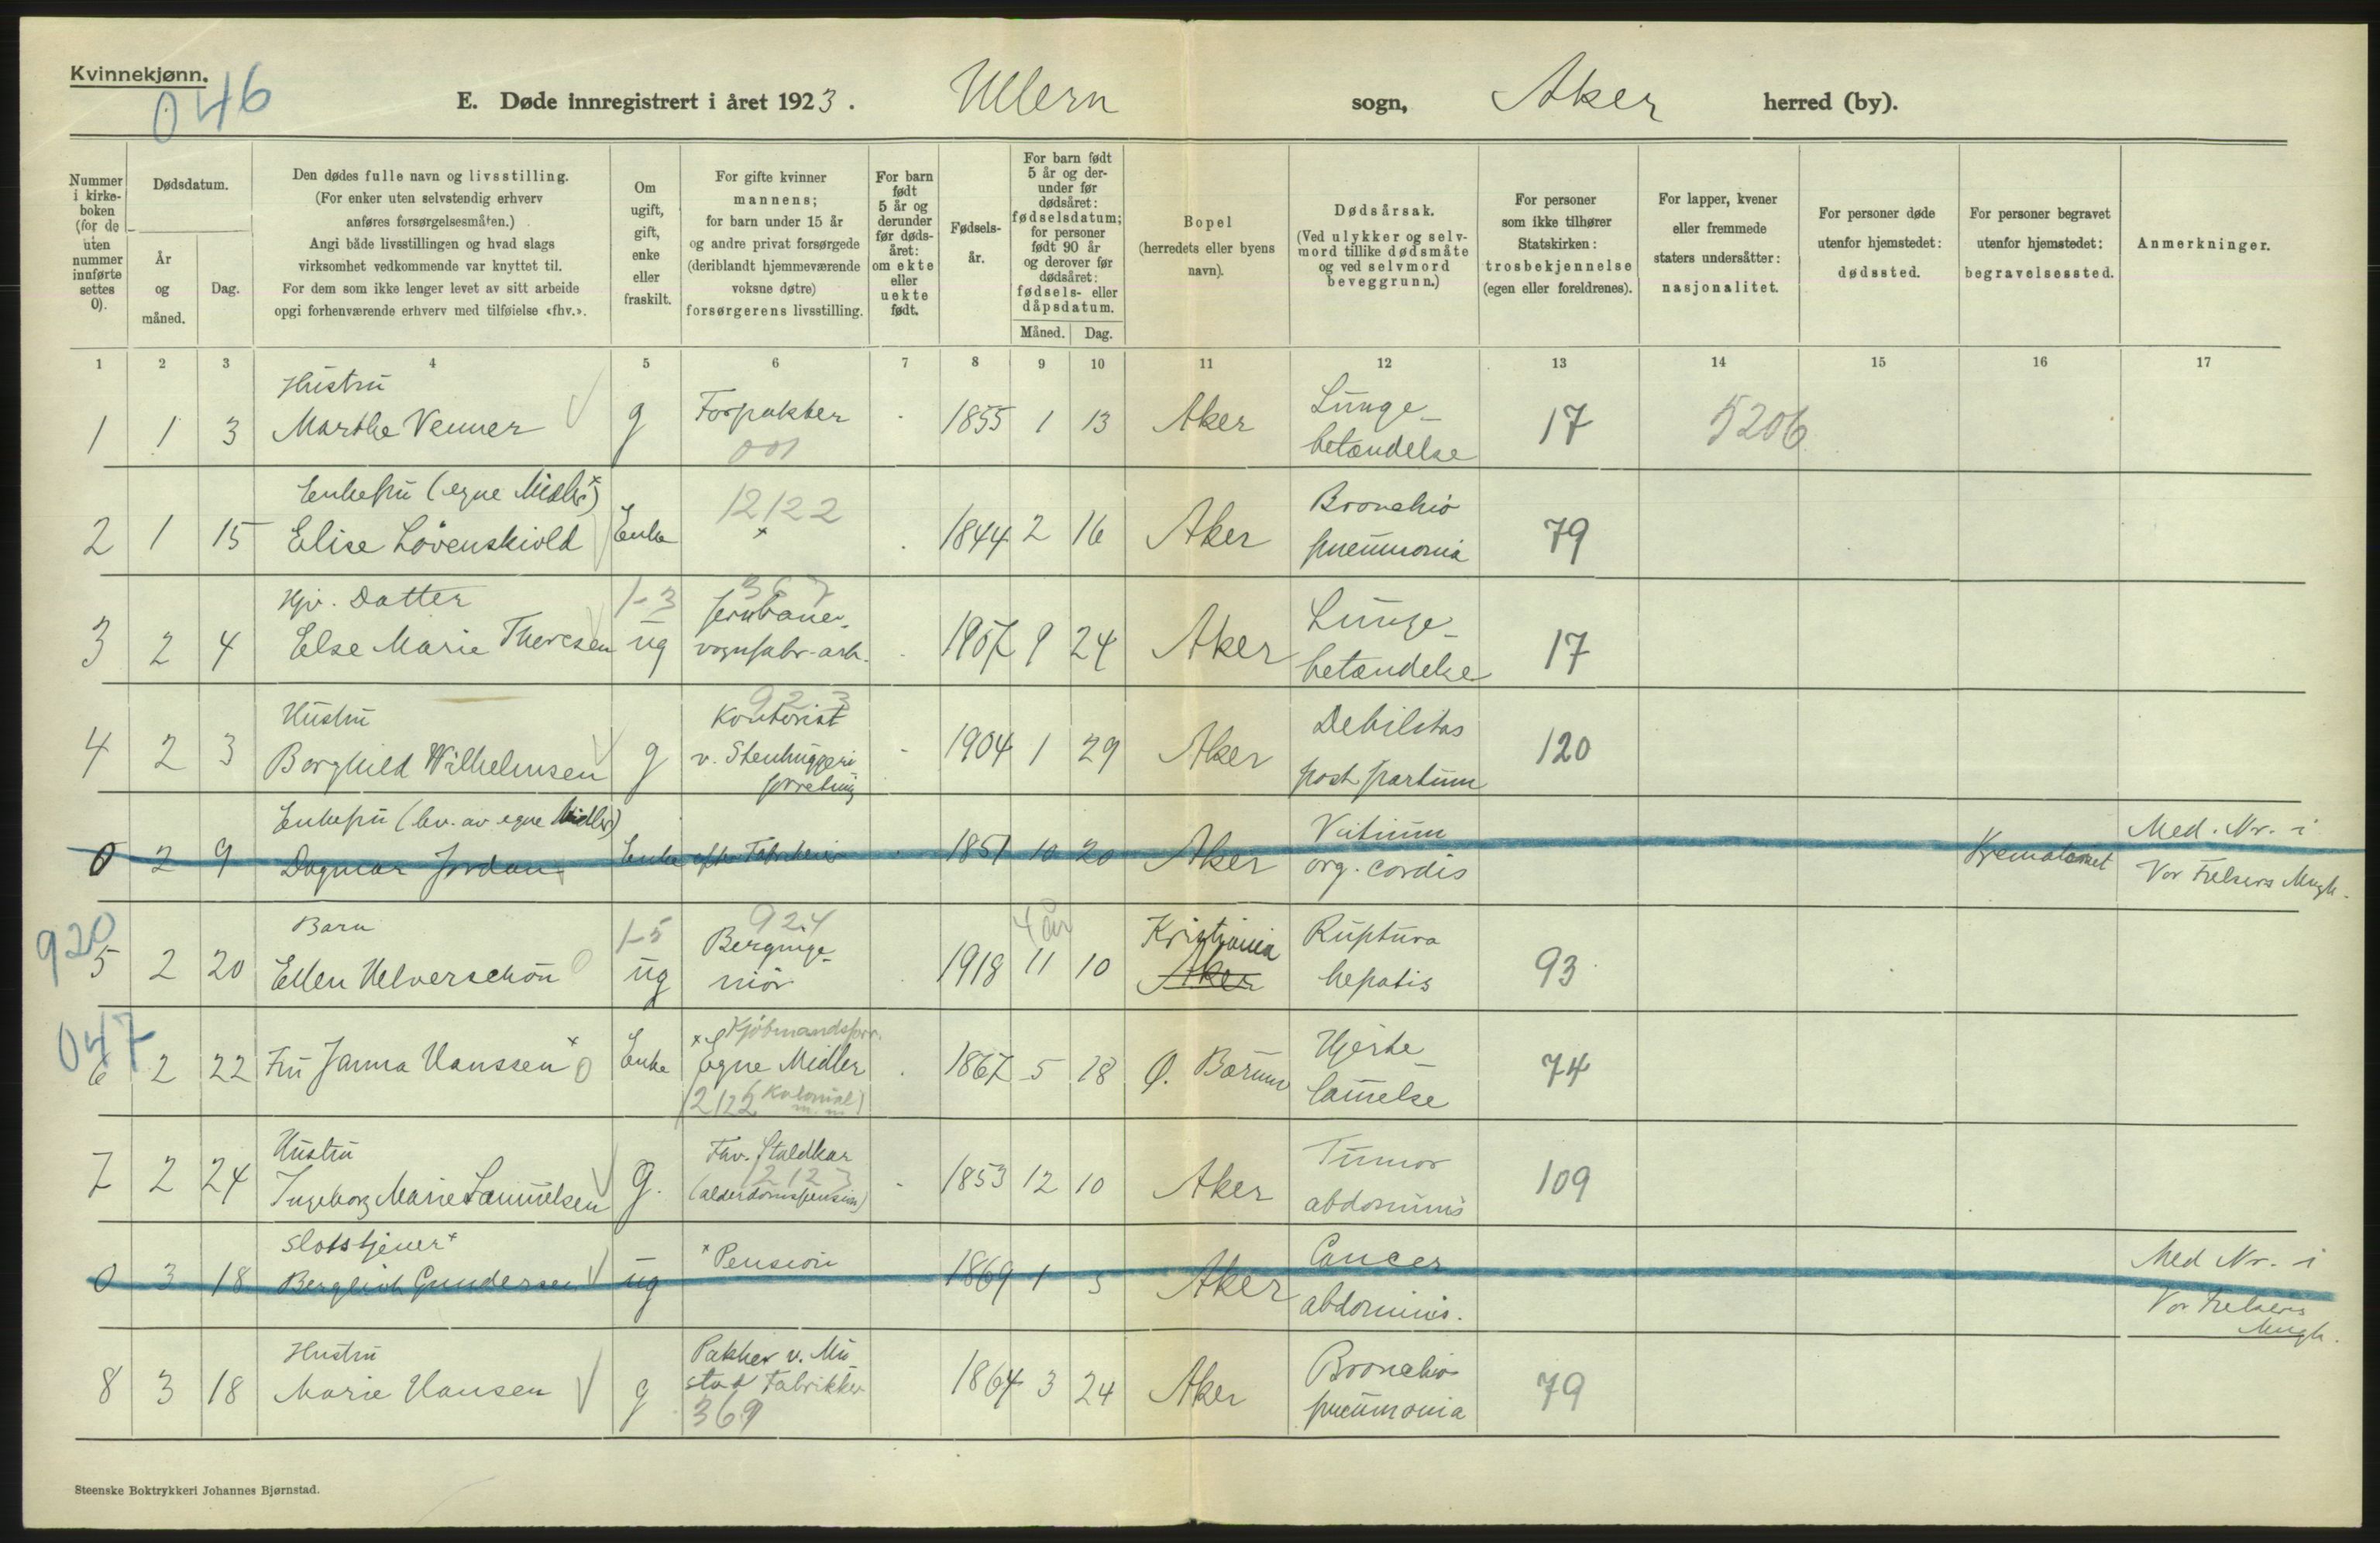 Kvinnekjønn.
046
E. Døde innregistrert i året 1923. Ullern sogn, Aker herred (by).
Nummer i kirke-boken (for de uten nummer innførte settes 0).
Dødsdatum.
År og måned.
Dag.
Den dødes fulle navn og livsstilling.
(For enker uten selvstendig erhverv
anføres forsørgelsesmåten.)
Angi både livsstillingen og hvad slags
virksomhet vedkommende var knyttet til.
For dem som ikke lenger levet av sitt arbeide
opgi forhenværende erhverv med tilføielse «fhv.».
Om ugift, gift, enke eller fraskilt.
For gifte kvinner
mannens;
for barn under 15 år
og andre privat forsørgede
(deriblandt hjemmeværende
voksne døtre)
forsørgerens livsstilling.
For barn født 5 år og derunder før døds-året: om ekte eller uekte født.
Fødsels-år.
For barn født 5 år og der-under før dødsåret: fødselsdatum; for personer født 90 år og derover før dødsåret: fødsels- eller dåpsdatum.
Måned. Dag.
Bopel
(herredets eller byens
navn).
Dødsårsak.
(Ved ulykker og selv-
mord tillike dødsmåte
og ved selvmord
beveggrunn.)
For personer
som ikke tilhører
Statskirken:
trosbekjennelse
(egen eller foreldrenes).
For lapper, kvener
eller fremmede
staters undersåtter:
nasjonalitet.
For personer døde
utenfor hjemstedet:
dødssted.
For personer begravet
utenfor hjemstedet:
begravelsessted.
Anmerkninger.
1 2 3 4 5 6 7 8 9 10 11 12 13 14 15 16 17
Hustru
1 1 3 Marthe Venner g Forpakter 1855 1 13 Aker Lunge- 17 5206
001 betændelse
Enkefru (egne Midler)x
12122
2 1 15 Elise Løvenskiold Enke x 1844 2 16 Aker Bronchio 79
pneumonia
Hjv. Datter 1-3 367
3 2 4 Else Marie Theresen ug Jernbane- 1907 9 24 Aker Lunge- 17
vognfabr.-arb. betændelse
923
Hustru Kontorist
4 2 3 Borghild Wilhelmsen g v. Stenhuggeri 1904 1 29 Aker Debilitas 120
forretning post partum
Enkefru (lev. av egne Midler)
0 2 9 Dagmar Jordan Enke efter Fabrikeier 1851 10 20 Aker Vitium Krematoriet Med. Nr. i
org. cordis Vor Frelsers Mngh.
920
Barn 1-5 924 4 år Kristiania
5 2 20 Ellen Helverschou ug Berginge- 1918 11 10 Aker Ruptura 93
niör hepatis
047
Kjöbmandsforr.
6 2 22 Fru Janna Hanssen x Enke x Egne Midler 1867 5 18 Ø. Bærum Hjerte- 74
12122 Kolonial m.m. lammelse
Hustru Fhv. Staldkar
7 2 24 Ingeborg Marie Samuelsen g. 12123 1853 12 10 Aker Tumor 109
(alderdomspension) abdominis
Slotstjener x
0 3 18 Bergliot Gundersen ug x Pension 1869 1 5 Aker Cancer Med Nr. i
abdominis. Vor Frelsers
Mngh.
Hustru Pakker v. Mu
8 3 18 Marie Hansen g stad Fabrikker 1864 3 24 Aker Bronchio 79
369 pneumonia
Steenske Boktrykkeri Johannes Bjørnstad.